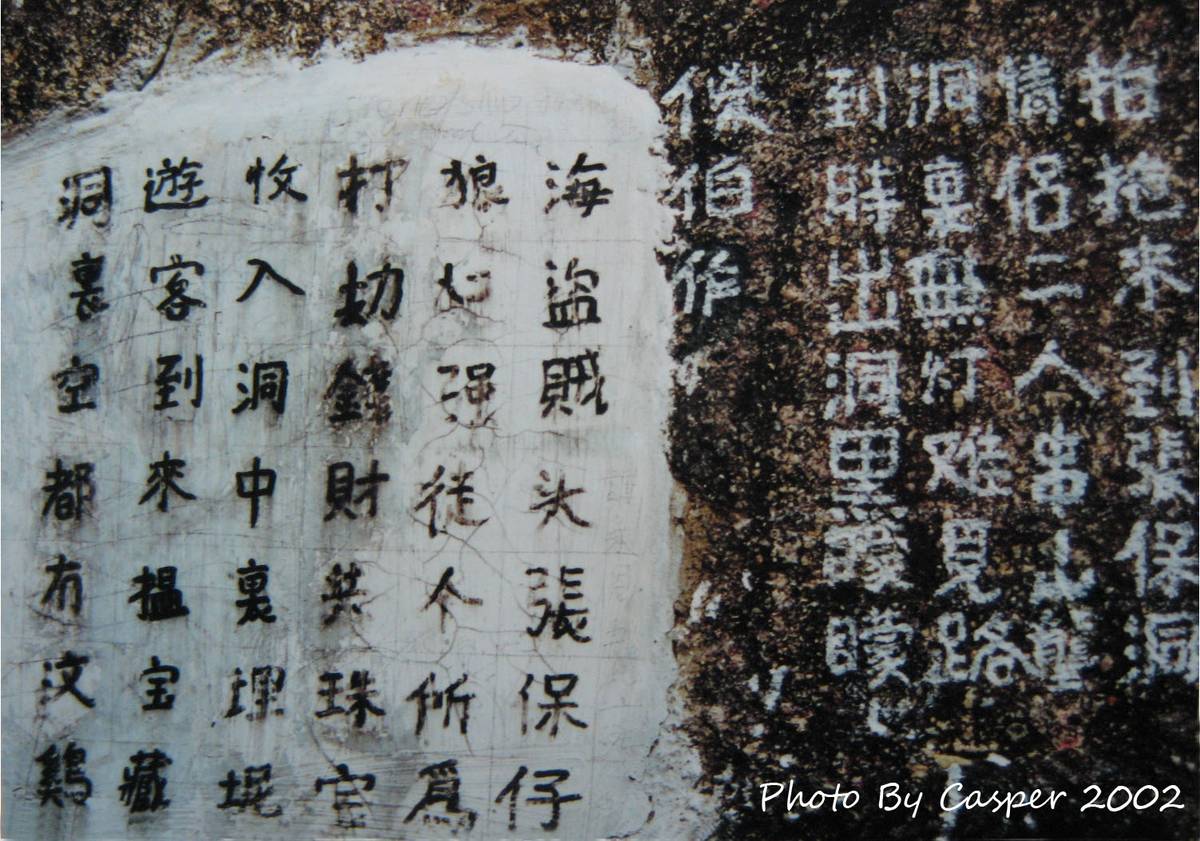 拍拖來到張保洞
情侶二人串山窿
洞裏無灯难見路
到時出洞黑矇矇
伯作
海盜賊头張保仔
狼强従个所爲
打刧錢財共珠宝
收入洞中裏埋坭
遊客到來搵宝藏
洞裏空都冇汶鷄
Photo By Casper 2002